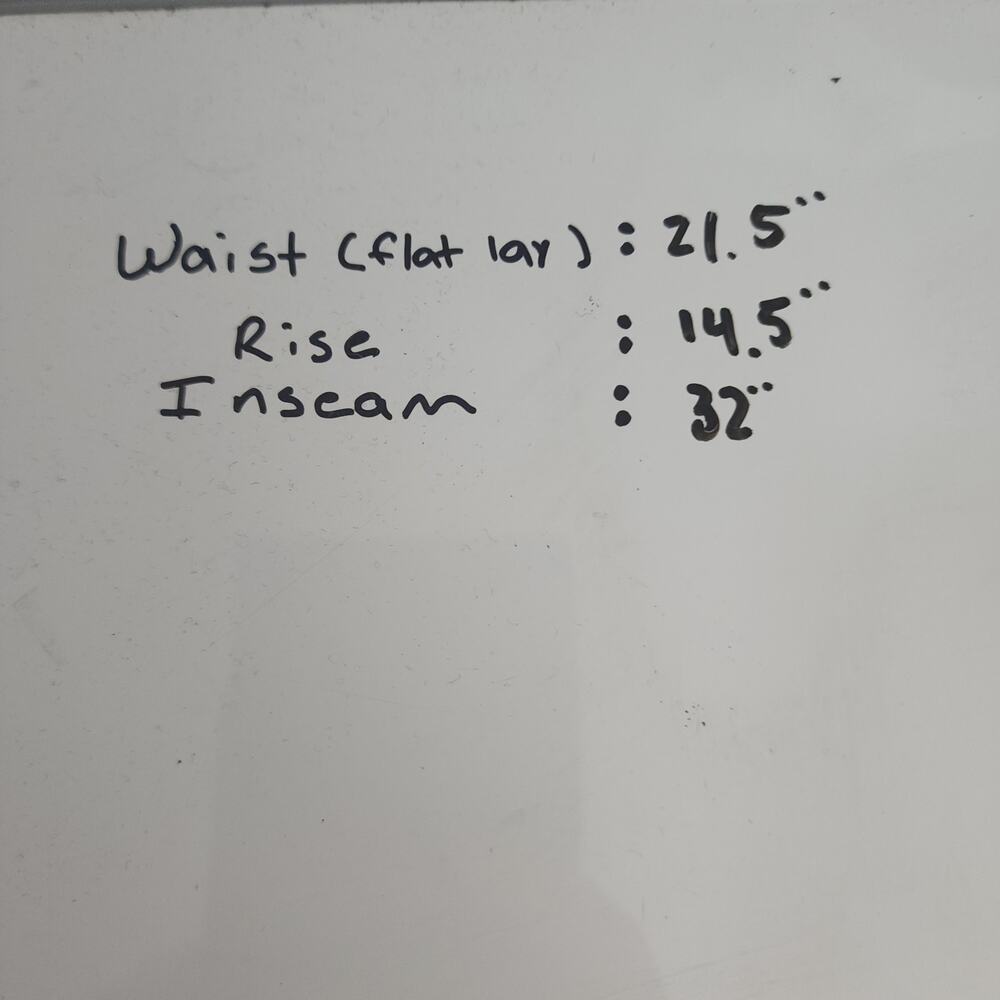 Waist (flat lay) : 21.5"
Rise : 14.5"
Inseam : 32"